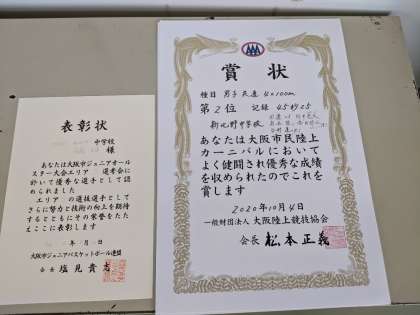 表彰状
中学校
様
あなたは大阪市ジュニアオール
スター大会エリア 選考会に
於いて優秀な選手として認
められました
エリアの選抜選手として
さらに努力と技術の向上を期待
するとともにその栄誉をたた
えここに表彰します
年 月 日
大阪市ジュニアバスケットボール連盟
会長 塩見貴志
賞状
種目 男子 共通 4×100m
第2位 記録 45秒25
新北野中学校
あなたは大阪市民陸上
カーニバルにおいて
よく健闘され優秀な成績
を収められたのでこれを
賞します
2020年10月4日
一般財団法人 大阪陸上競技協会
会長 松本正義